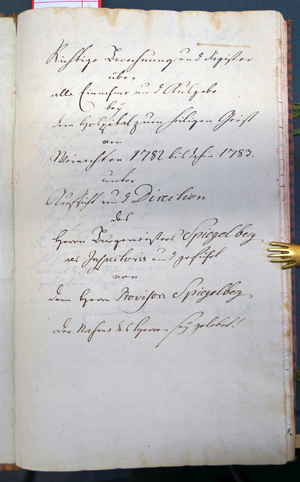 Richtige Berechnung und Register
über
alle Einnahme und Ausgabe
bey
dem Hospital zum heiligen Geist
von
Weinachten 1782 bis dahin 1783.
unter
Aufsicht und Direction
des
Herrn Burgemeisters Spiegelberg
als Inspectoris und geführt
von
dem Herrn Provisor Spiegelberg
Der Nahme des Herrn sey gelobet!